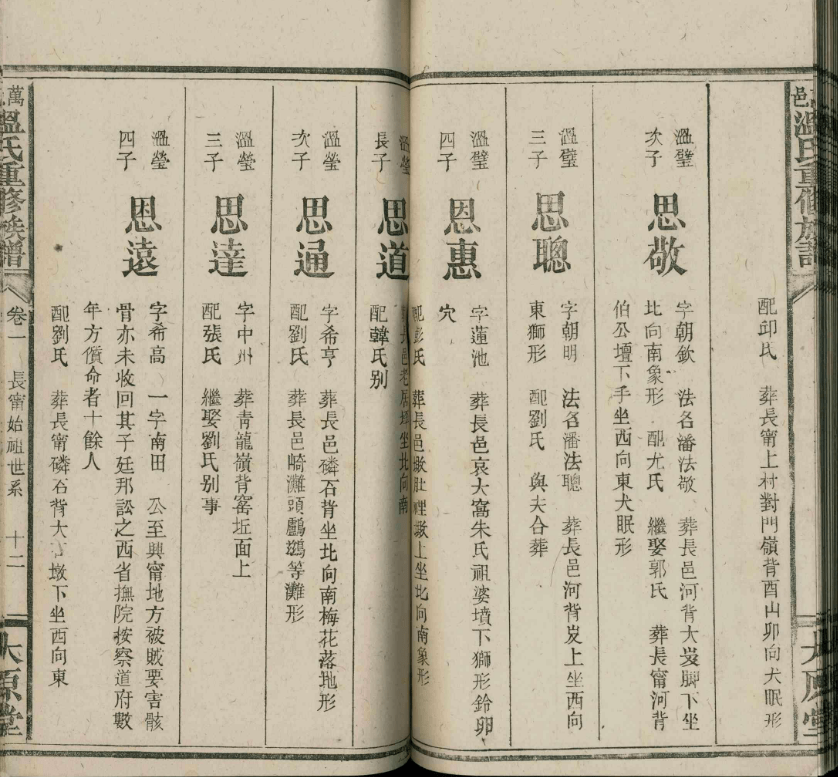 邑溫氏重修族譜
太原堂
配邱氏 葬長甯上村對門嶺背酉山卯向犬眠形
溫璧
次子
思敬
字朝欽 法名潘法敬 葬長邑河背大岌脚下坐
比向南象形 配尤氏 繼娶郭氏 葬長甯河背
伯公壇下手坐西向東犬眠形
溫璧
三子
思聰
字朝明 法名潘法聰 葬長邑河背岌上坐西向
東獅形 配劉氏 與夫合葬
溫璧
四子
恩惠
字蓮池 葬長邑哀大窩朱氏祖婆墳下獅形鈴卵
穴
配彭氏 葬長邑墩肚裡墩上坐北向南象形
溫瑩
長子
思道
長邑老 坐北向南
配韓氏别
溫瑩
次子
思通
字希亨 葬長邑磷石背坐北向南梅花落地形
配劉氏 葬長邑崎灘頭鸕鷀等灘形
溫瑩
三子
思達
字中州 葬青龍嶺背窰坵面上
配張氏 繼娶劉氏别事
溫瑩
四子
恩遠
字希高 一字南田 公至興甯地方破賊要害骸
骨亦未收回其子廷邦訟之西省撫院按察道府數
年方償命者十餘人
配劉氏 葬長甯磷石背大 墩下坐西向東
萬 溫氏重修族譜
卷一 長甯始祖世系 十二
太原堂